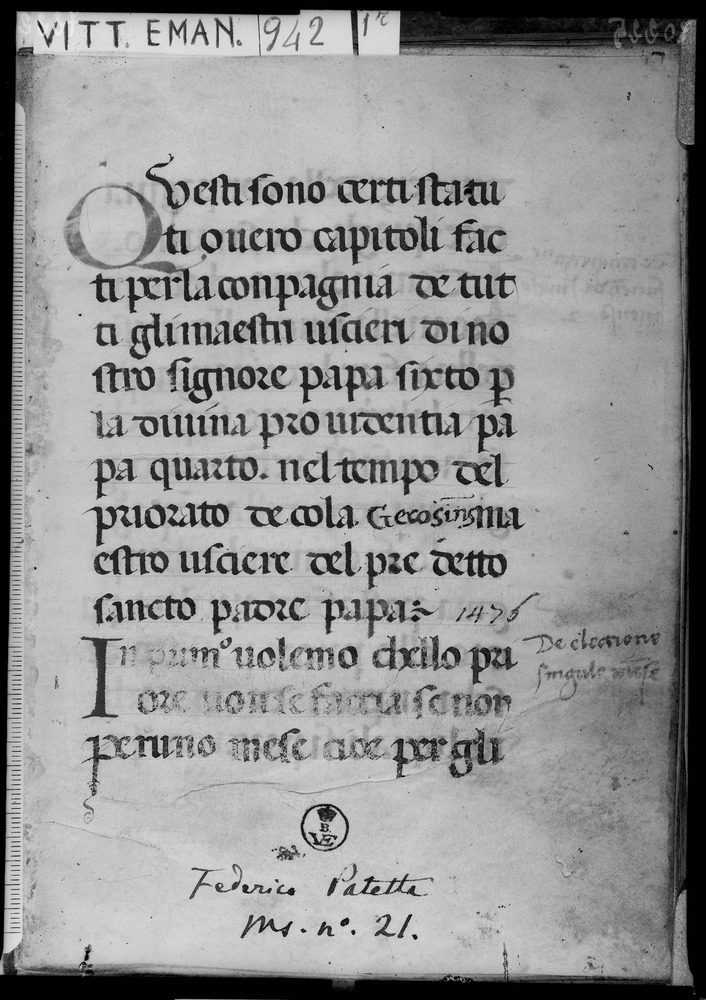 VITT. EMAN. 942 1r
Questi sono certi statu
ti overo capitoli fac
ti per la conpagnia de tut
ti gli maestri uscieri di no
stro signore papa sixto p
la divina providentia pa
pa quarto. nel tempo del
priorato de cola Gerosins ma
estro usciere del pre detto
sancto padre papa:~ 1476
In primo uolemo chello pri
De electione
ore non se faccia se non
singulo mese
per uno mese cioe per gli
B.
VE
Federico Patetta
Ms. nº. 21.